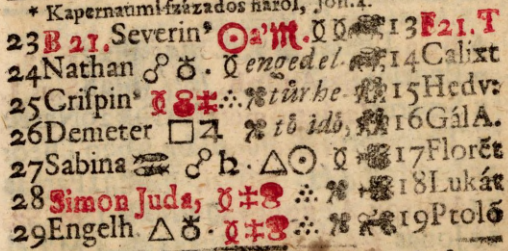 * Kapernaumi százados
23 B 21. Severin' ☉ a' ♏. 13 F 21. T
24 Nathan ☍ ♁. engedel 14 Calixt
25 Crispin' 15 Hedv:
26 Demeter □ ♃ tö idö, 16 Gál A.
27 Sabina ☍ ♄. △ ☉. 17 Florēt
28 Simon Juda, 18 Lukát
29 Engelh △ ♁. 19 Ptolō